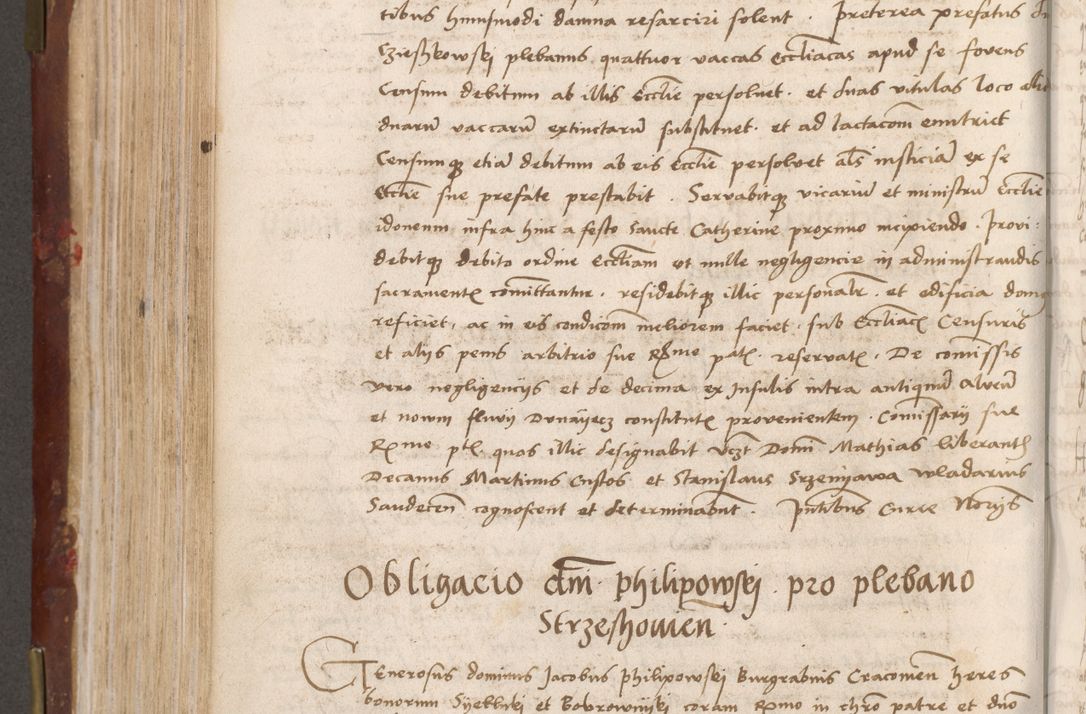 tibus huiusmodi damna resarciri solent . Preterea prefatus
Czieszkowskj plebanus quattuor vaccas Eccl̅iacas apud se fovens
Censum debitum ab illis Eccl̅ie persolvet . et duas vitulas loco
duaru̅ vaccaru̅ extinctaru̅ substituet . et ad lactaco̅m enutriet
Censumqȝ etia̅ debitum ab eis Eccl̅ie persolvet al̅s iusticia̅ ex se
Eccl̅ie sue prefate prestabit . Servabitqȝ vicariu̅ et ministru̅ Eccl̅ie
idoneum infra hinc a festo Sancte Catherine proximo incipiendo . Provi:
debitqȝ debito ordine Eccl̅iam ut nulle negligencie in administrandis
sacramentꝭ com̅ittantur . residebitqȝ illic personalr̅ . et edificia
reficiet, ac in eis condico̅m meliorem faciet . sub Eccl̅iacꝭ Censuris
et alijs penis arbitrio sue R̅me patꝭ . reservatꝭ . De com̅issis
vero negligencijs et de decima ex Insulis intra antiquu̅ alveu̅
et novum fluvij Dunayecz constitutꝭ provenientem . Com̅issarij sue
R̅me ptꝭ quos illic designabit vcz̅t Domi̅ Mathias liberantꝭ
Decanus Martinus Custos et Stanislaus Srzeniawa wladarius
Sandecen̅ cognoscent et determinabu̅t . Pn̅tibus Curie Notrijs
Obligacio dn̅i . philipowskj . pro plebano
Strzeshowien̅ .
Generosus dominus Jacobus philipowskj Burgrabius Cracovien̅ heres
bonorum et coram R̅mo in chr̅o patre et dn̅o